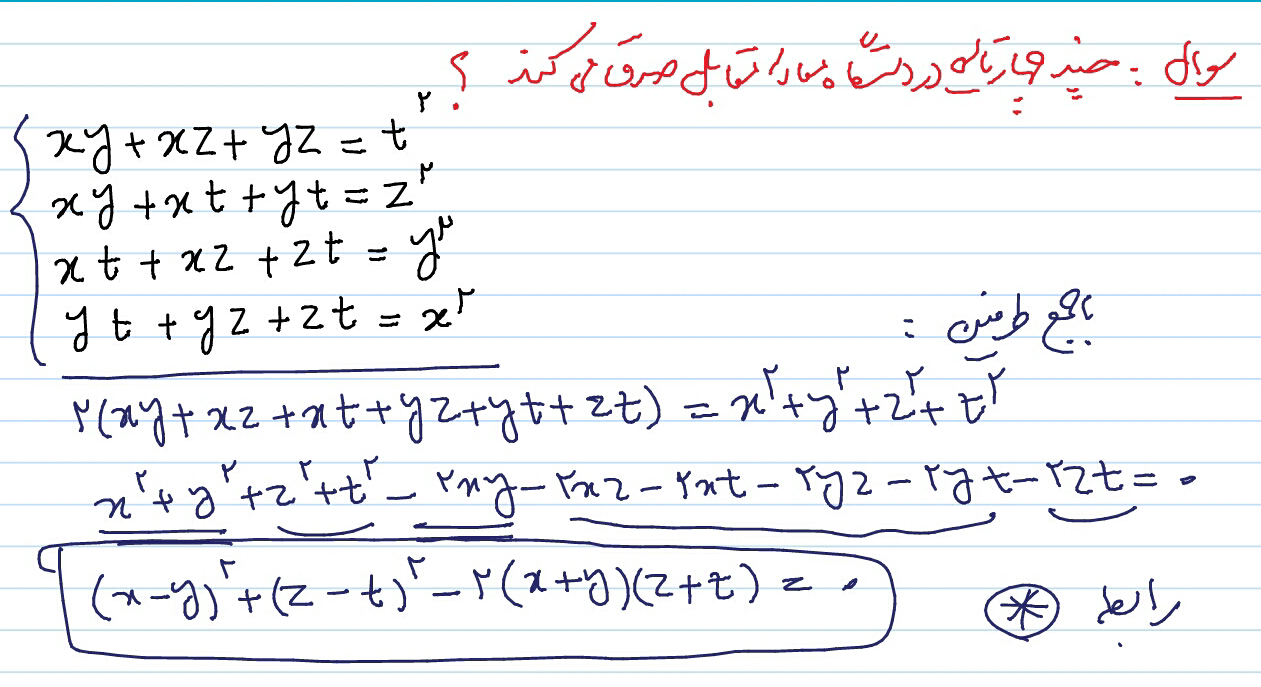 سوال : چند چهارتایی در دستگاه معادلات مقابل صدق می کند ؟
xy + xz + yz = t^۲
xy + xt + yt = z^۲
xt + xz + zt = y^۲
yt + yz + zt = x^۲
با جمع طرفین :
۲(xy + xz + xt + yz + yt + zt) = x^۲ + y^۲ + z^۲ + t^۲
x^۲ + y^۲ + z^۲ + t^۲ - ۲xy - ۲xz - ۲xt - ۲yz - ۲yt - ۲zt = ۰
(x-y)^۲ + (z-t)^۲ - ۲(x+y)(z+t) = ۰ رابطه *